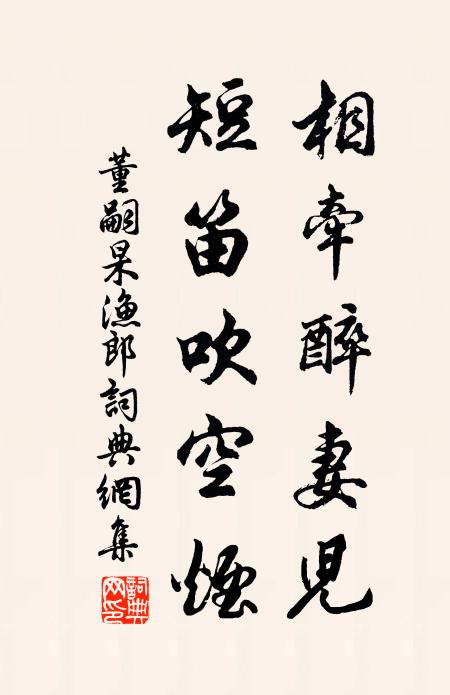 相牽醉妻児
短笛吹空煙
董嗣杲漁郎詞典網集
詞典網印